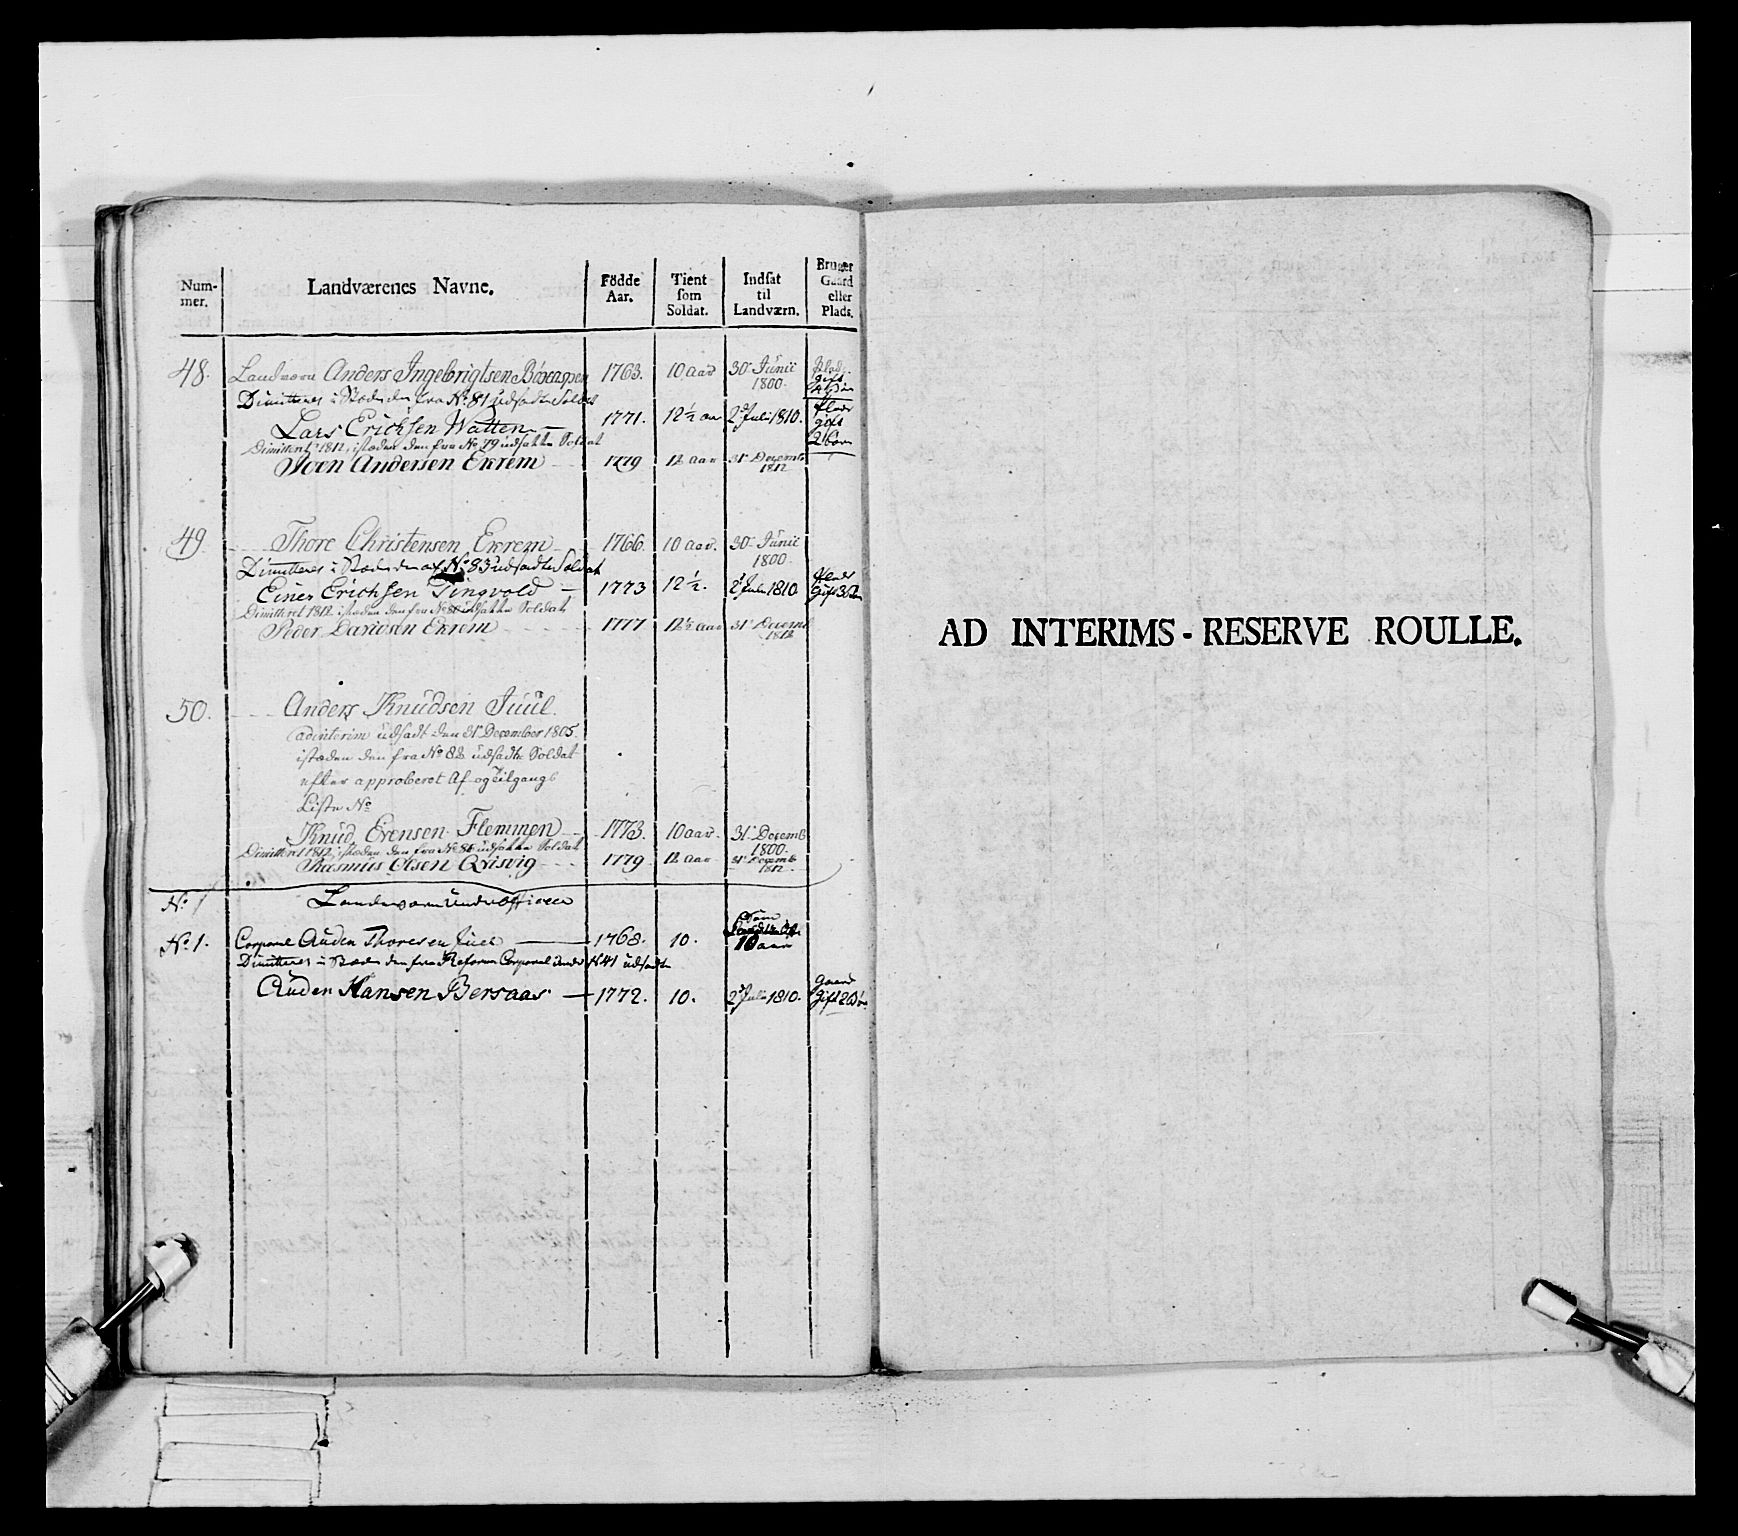 Num-mer. Landværenes Navne. Födde Aar. Tient som Soldat. Indsat til Landværn. Bruger Gaard eller Plads.
48. Landværn Anders Ingebrigtsen 1763. 10 Aar 30 Junii 1800. Plads gift
Dimitteres i Stæden den fra No 81 udsadte Soldat
Lars Erichsen Watten 1771. 12½ aar 2 Juli 1810. Plads gift 2 børn
Dimitteret 1812, istæden den fra No 79 udsatte Soldat
Iven Andersen Ekrem 1779 12 Aar 31 Decemb 1812
49 Thore Christensen Ekrem 1766 10 Aar. 30 Junii 1800.
Dimitteres i Stæden den af No 83 udsadte Soldat
Einer Erichsen Tingvold 1773 12½. 2 Juli 1810 Plads Gift 3
Dimitteret 1812 istæden den fra No udsatte Soldat
Peder Davidsen Ekrem 1777 12½ Aar 31 Decemb 1812
50. Anders Knudsen Juul.
adinterim udsadt den 31 December 1805.
istæden den fra No 82 udsadte Soldat
efter approberet Af- og Tilgangs
Liste No
Knud Evensen Flemmen 1773. 10 aar. 31 Decemb 1800.
Dimitteret 1812, istæden den fra No udsatte Soldat
Rasmus Olsen Qvisvig 1779 12 Aar 31 Decemb 1812.
No 1 Landværn Underofficeer
No 1. Corporal Auden Thoresen 1768. 10. 10 aar
Dimitteres i Stæden den fra Reserve Corporal under No 41 udsadte
Auden Hansen Bersaas 1772. 10. 2 Juli 1810. Gaard Gift 2 Bør
AD INTERIMS-RESERVE ROULLE.